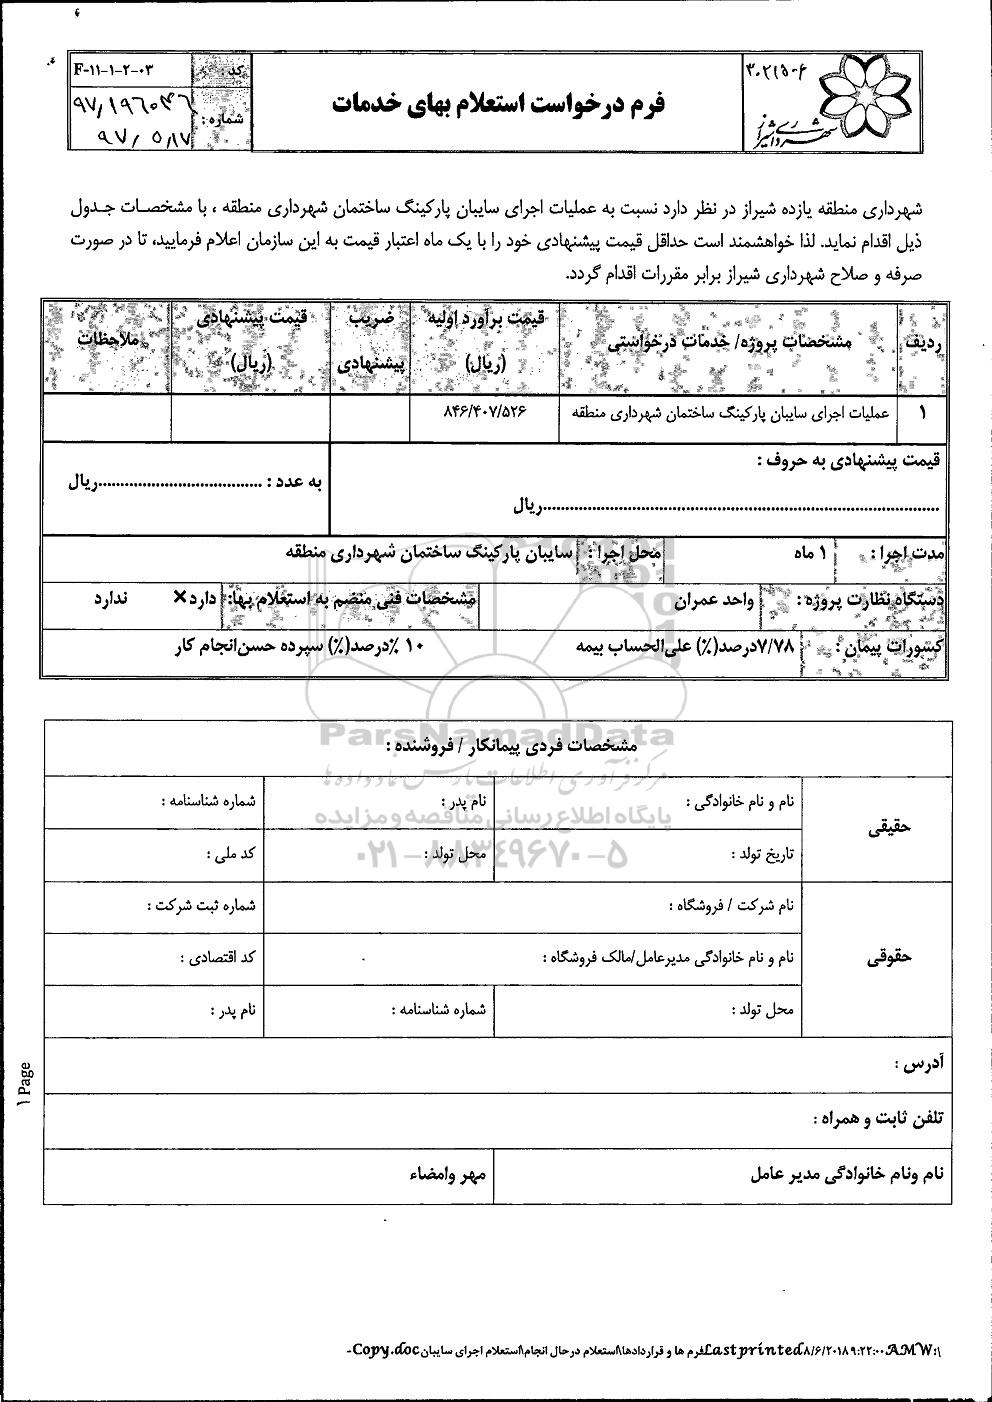 ۳۰۲۱۵-۶
شهرداری شیراز
فرم درخواست استعلام بهای خدمات
کد :
F-۱۱-۱-۲-۰۳
شماره :
۹۷/۵/۱۷
شهرداری منطقه یازده شیراز در نظر دارد نسبت به عملیات اجرای سایبان پارکینگ ساختمان شهرداری منطقه ، با مشخصات جدول
ذیل اقدام نماید. لذا خواهشمند است حداقل قیمت پیشنهادی خود را با یک ماه اعتبار قیمت به این سازمان اعلام فرمایید، تا در صورت
صرفه و صلاح شهرداری شیراز برابر مقررات اقدام گردد.
ردیف
مشخصات پروژه/ خدمات درخواستی
قیمت برآورد اولیه
(ریال)
ضریب
پیشنهادی
قیمت پیشنهادی
(ریال)
ملاحظات
۱
عملیات اجرای سایبان پارکینگ ساختمان شهرداری منطقه
۸۴۶/۴۰۷/۵۲۶
قیمت پیشنهادی به حروف :
................................................................................ریال
به عدد : ......................................ریال
مدت اجرا :
۱ ماه
محل اجرا :
سایبان پارکینگ ساختمان شهرداری منطقه
دستگاه نظارت پروژه :
واحد عمران
مشخصات فنی منضم به استعلام بها:
دارد×
ندارد
کسورات پیمان :
۷/۷۸درصد(٪) علی‌الحساب بیمه
۱۰ ٪درصد(٪) سپرده حسن‌انجام کار
ParsNamadData
مرکز فرآوری اطلاعات پارس نماد داده ها
پایگاه اطلاع رسانی مناقصه و مزایده
۰۲۱-۸۸۳۴۹۶۷۰-۵
مشخصات فردی پیمانکار / فروشنده :
حقیقی
نام و نام خانوادگی :
نام پدر :
شماره شناسنامه :
تاریخ تولد :
محل تولد :
کد ملی :
حقوقی
نام شرکت / فروشگاه :
شماره ثبت شرکت :
نام و نام خانوادگی مدیرعامل/مالک فروشگاه :
کد اقتصادی :
محل تولد :
شماره شناسنامه :
نام پدر :
آدرس :
تلفن ثابت و همراه :
نام ونام خانوادگی مدیر عامل
مهر وامضاء
۱ Page
AMW:\فرم ها و قراردادها\استعلام درحال انجام\استعلام اجرای سایبان - Copy.doc Last printed ۸/۶/۲۰۱۸ ۹:۲۲:۰۰